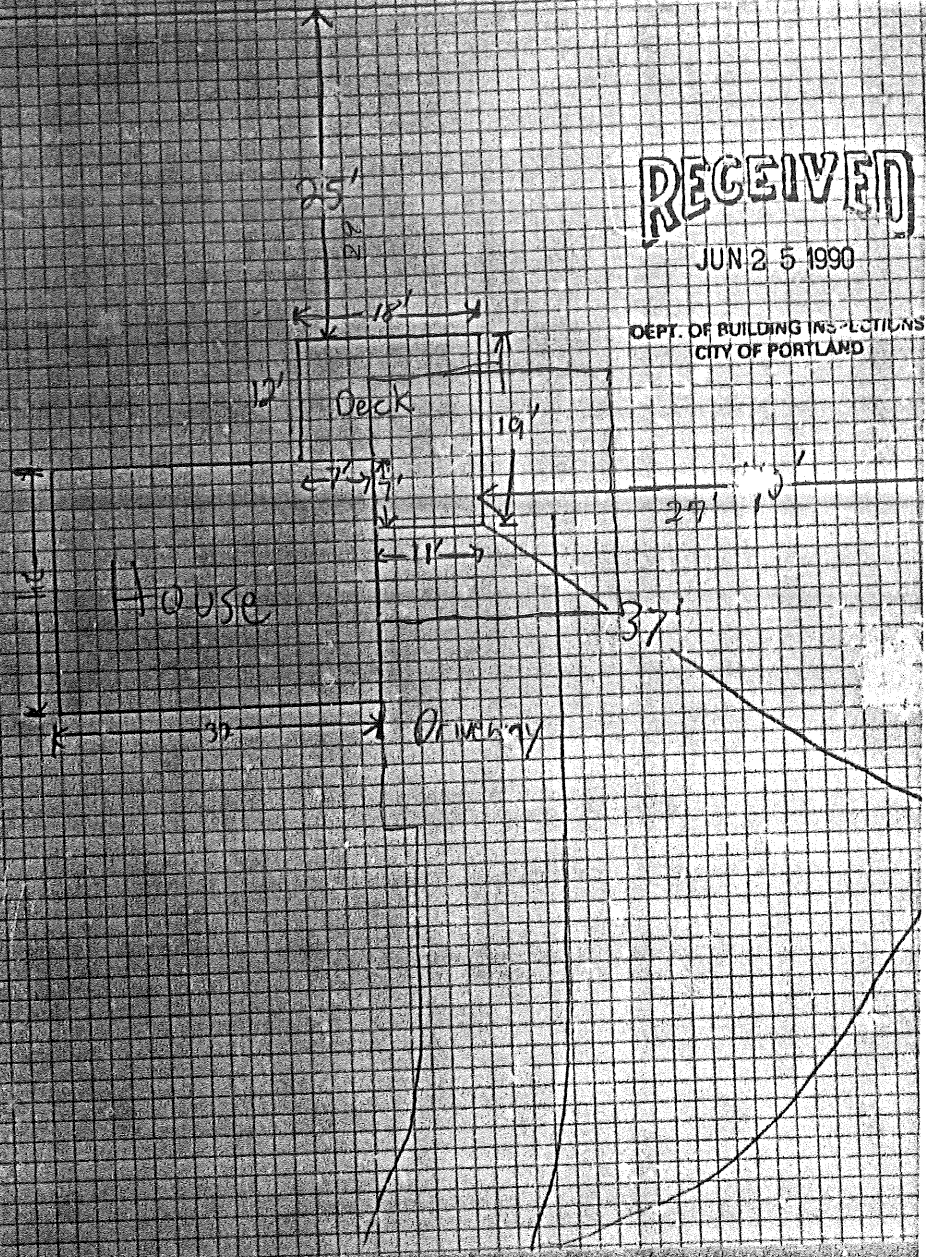 25'
RECEIVED
JUN 25 1990
DEPT. OF BUILDING INSPECTIONS
CITY OF PORTLAND
18'
12'
Deck
19'
7'
7'
27'
11'
House
37'
Driveway